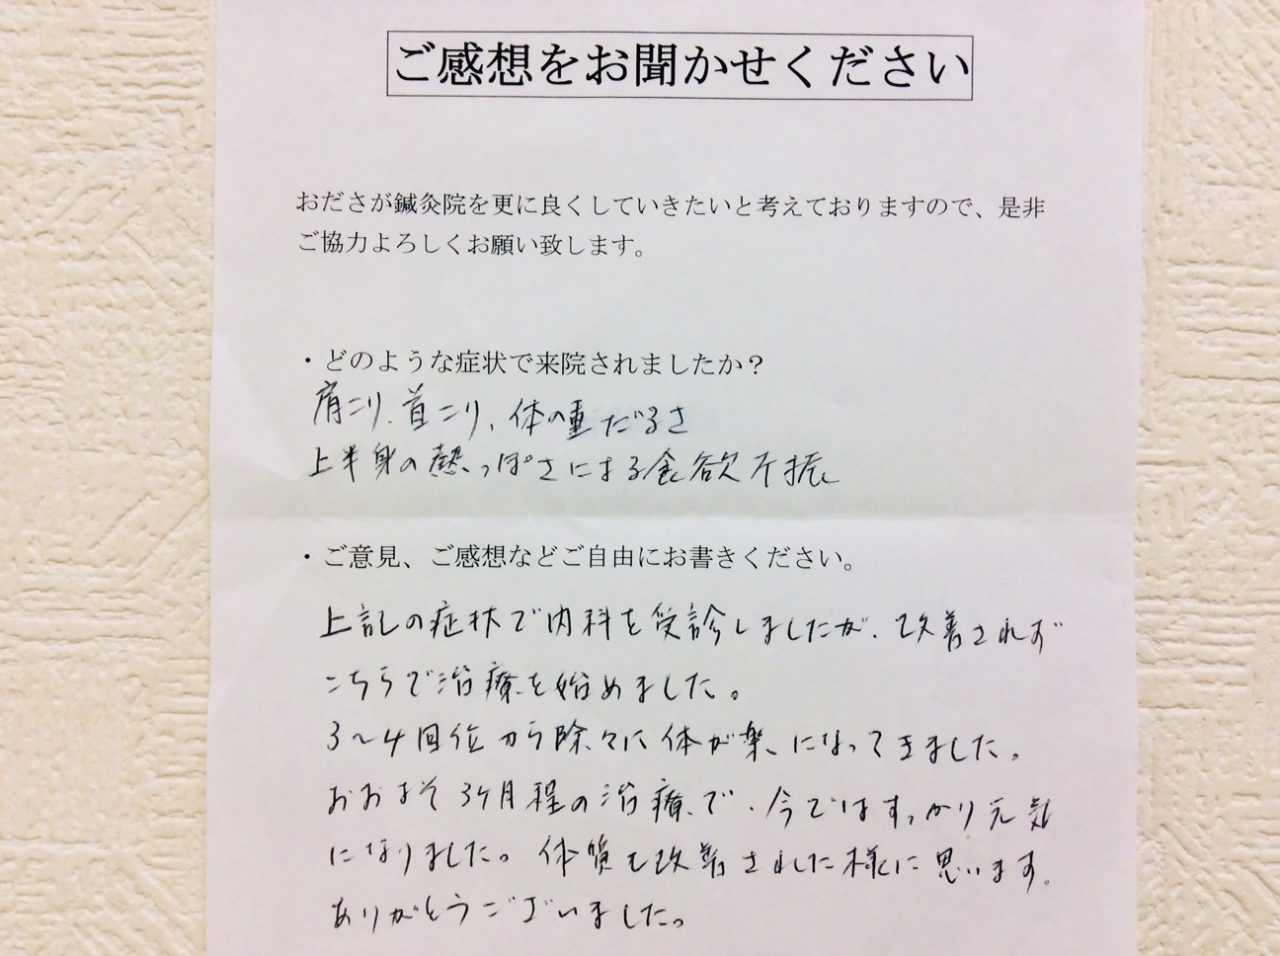 ご感想をお聞かせください
おださが鍼灸院を更に良くしていきたいと考えておりますので、是非
ご協力よろしくお願い致します。
・どのような症状で来院されましたか？
肩こり、首こり、体の重だるさ
上半身の熱っぽさによる食欲不振
・ご意見、ご感想などご自由にお書きください。
上記の症状で内科を受診しましたが、改善されず
こちらで治療を始めました。
3〜4回位から除々に体が楽になってきました。
おおよそ3ヶ月程の治療で、今ではすっかり元気
になりました。体質も改善された様に思います。
ありがとうございました。